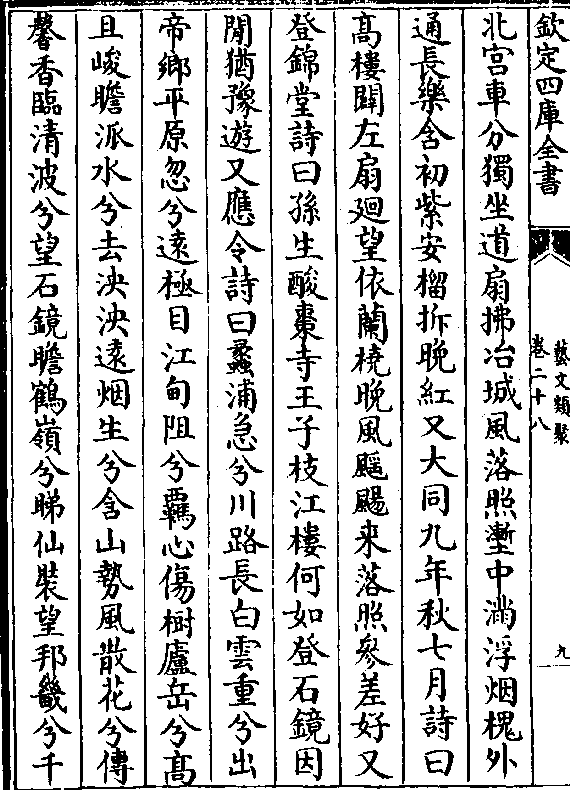 欽定四庫全書
藝文類聚
卷二十八
九
北宫車分獨坐道扇拂冶城風落照塹中滿浮烟槐外
通長樂含初紫安榴拆晚紅又大同九年秋七月詩曰
髙樓闢左扇迴望依蘭橈晚風飈颺來落照參差好又
登錦堂詩曰孫生酸棗寺王子枝江樓何如登石鏡因
閒猶豫遊又應令詩曰蠡浦急兮川路長白雲重兮出
帝鄉平原忽兮遠極目江甸阻兮羇心傷樹廬岳兮髙
且峻瞻派水兮去泱泱遠烟生兮含山勢風散花兮傳
馨香臨清波兮望石鏡瞻鶴嶺兮睇仙裝望邦畿兮千